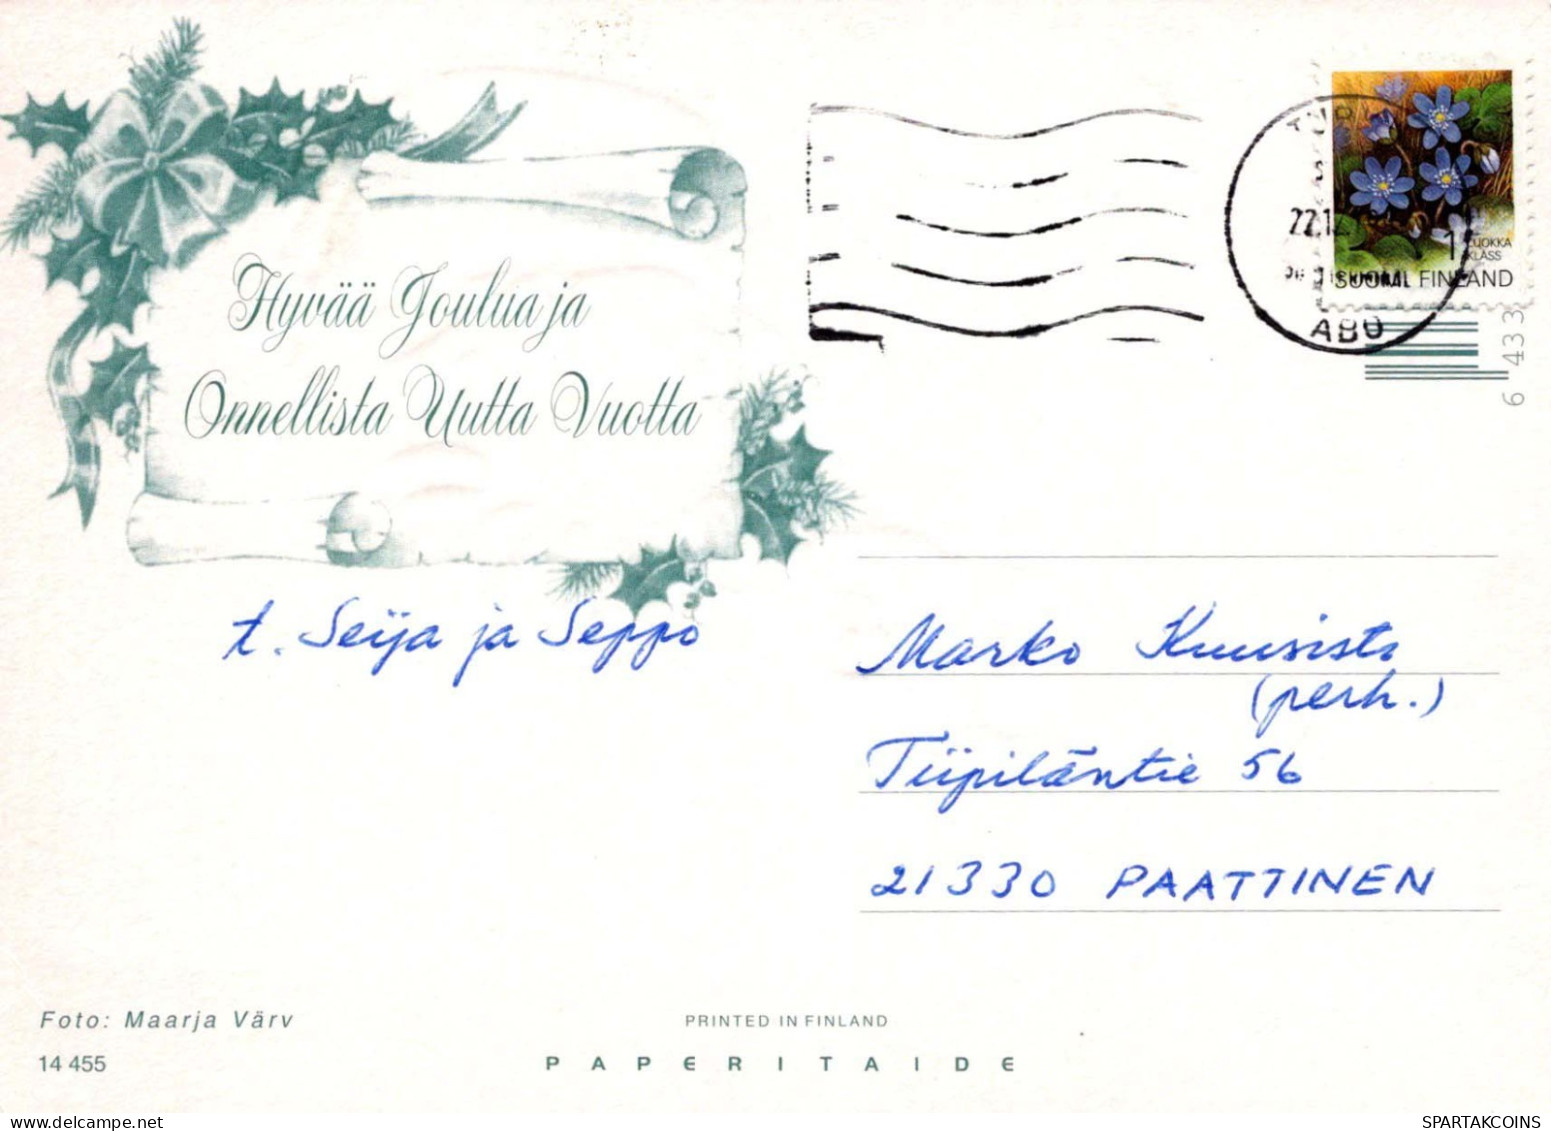 Hyvää Joulua ja
Onnellista Uutta Vuotta
t. Seija ja Seppo
1 LUOKKA
KLASS
SUOMI FINLAND
22.12
ABO
6 433
Marko Kuusisto
(perh.)
Tiipiläntie 56
21330 PAATTINEN
Foto: Maarja Värv
14 455
PRINTED IN FINLAND
PAPERITAIDE
SPARTAKCOINS